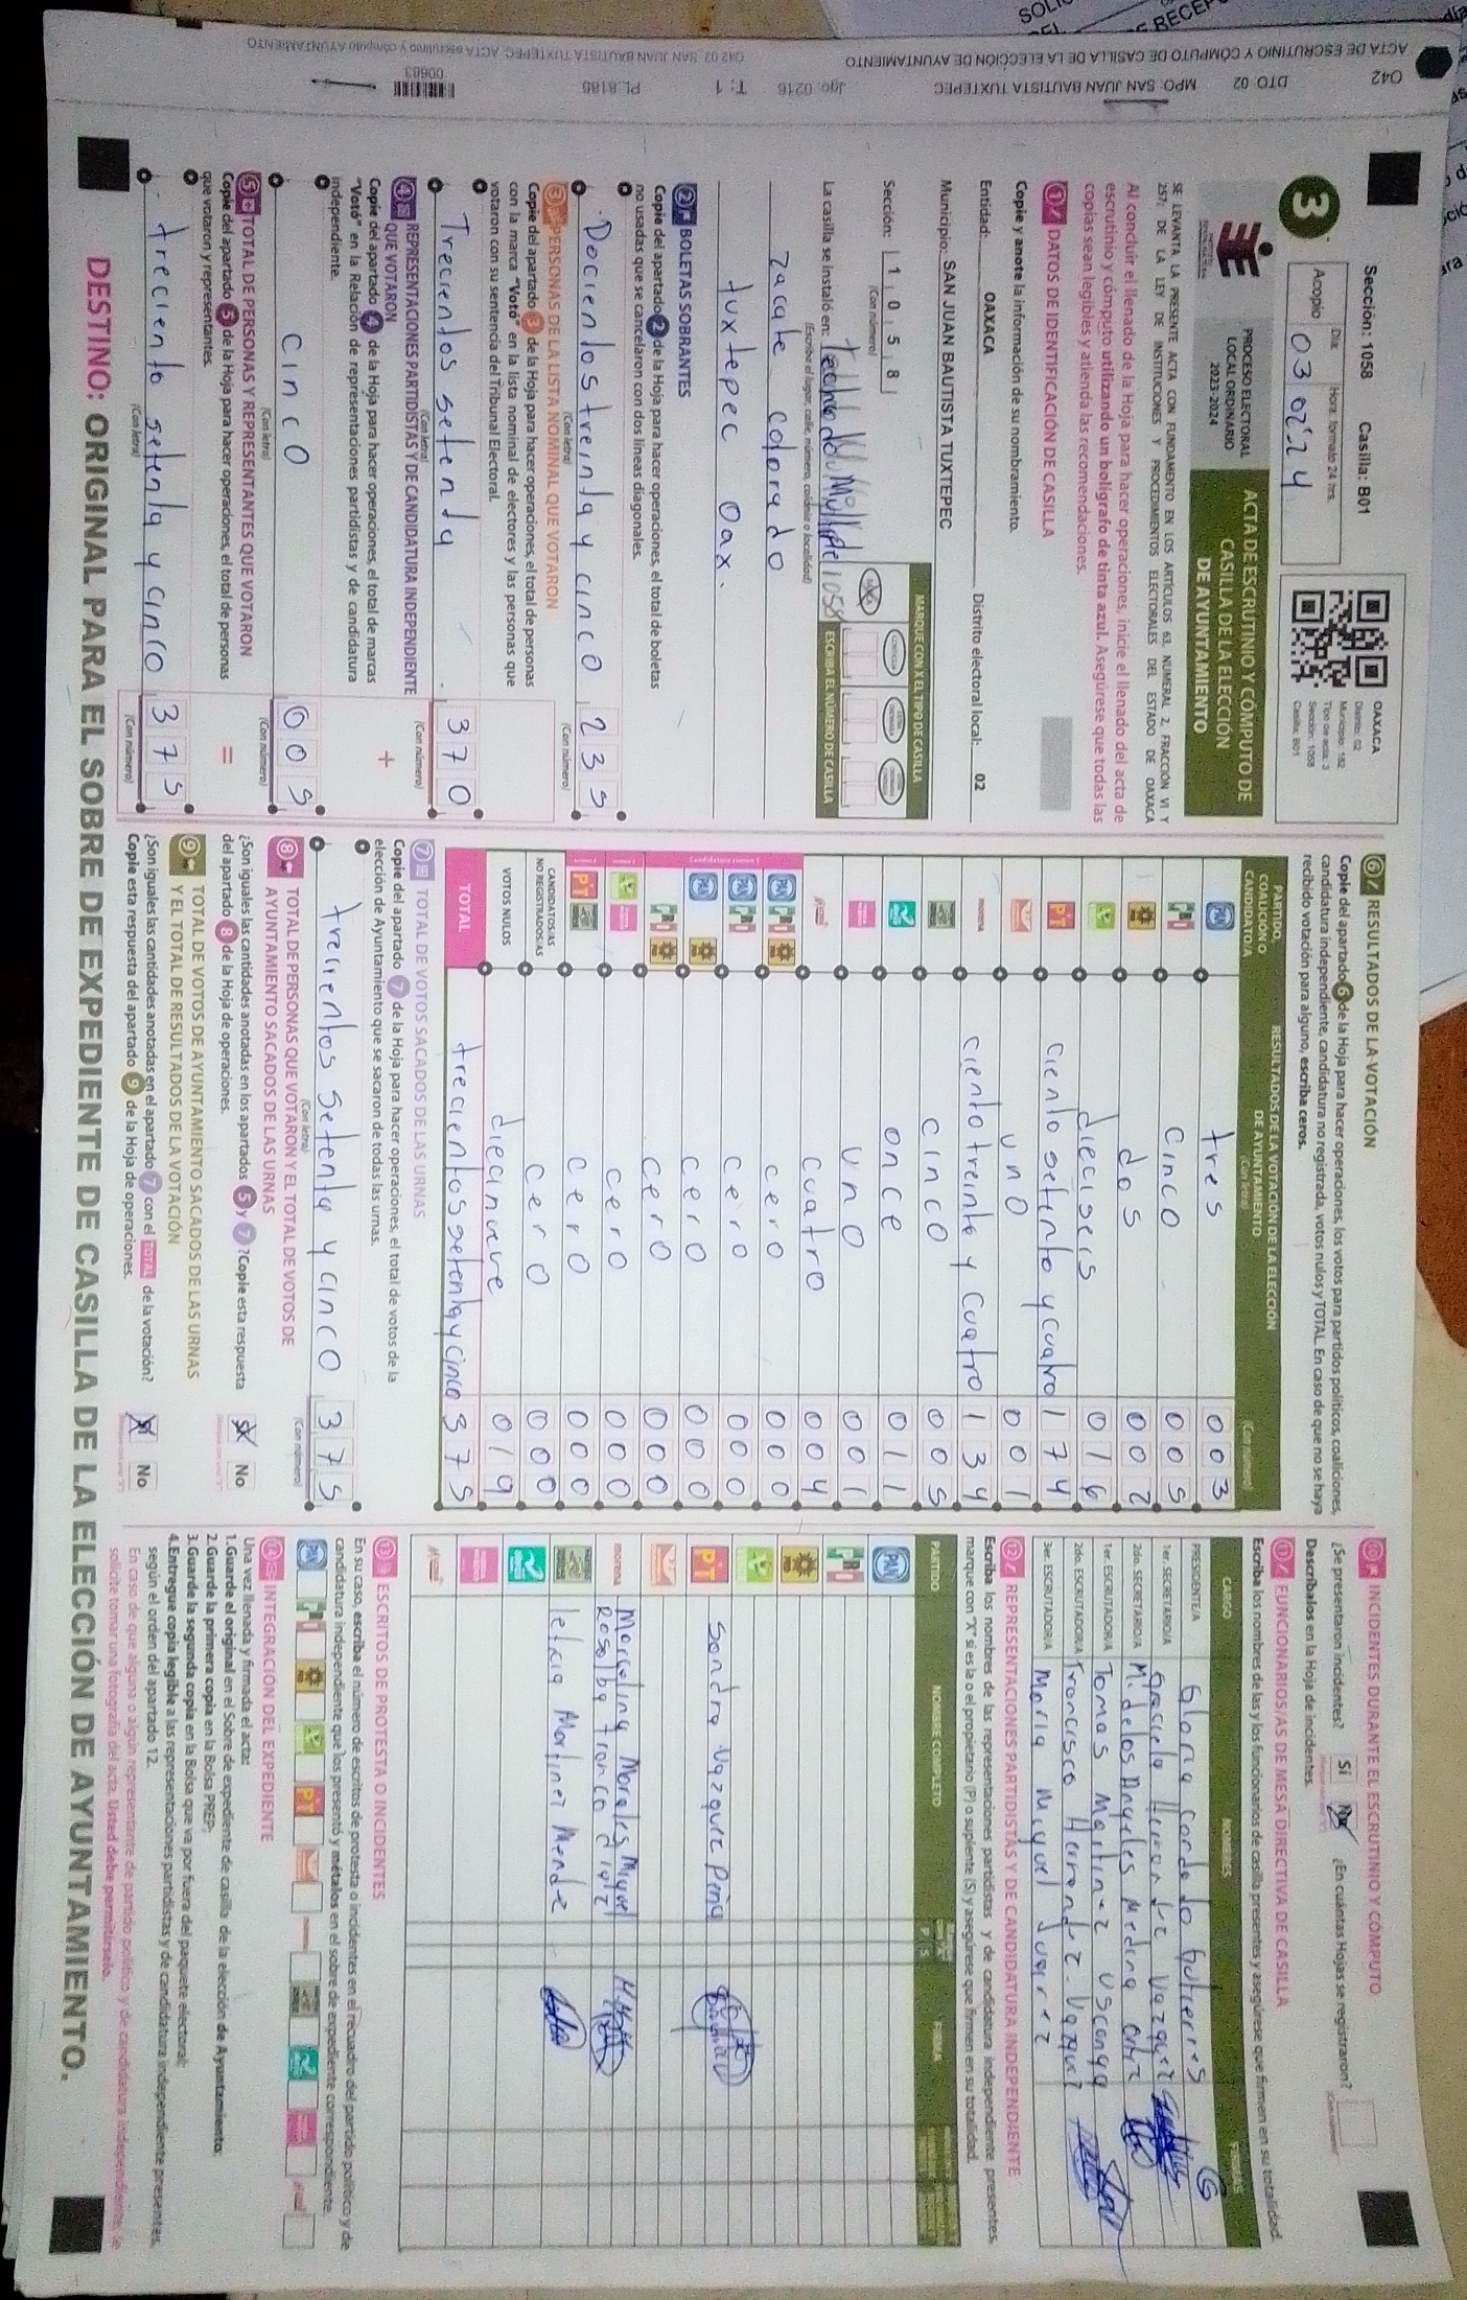 Sección: 1058 Casilla: B01
3
Acopio
Día: Hora: formato 24 hrs.
03 02:24
OAXACA
Distrito: 02
Municipio: 182
Tipo de acta: 3
Sección: 1058
Casilla: B01
PROCESO ELECTORAL
LOCAL ORDINARIO
2023-2024
ACTA DE ESCRUTINIO Y CÓMPUTO DE
CASILLA DE LA ELECCIÓN
DE AYUNTAMIENTO
SE LEVANTA LA PRESENTE ACTA CON FUNDAMENTO EN LOS ARTÍCULOS 63, NUMERAL 2, FRACCIÓN VI Y
257; DE LA LEY DE INSTITUCIONES Y PROCEDIMIENTOS ELECTORALES DEL ESTADO DE OAXACA
Al concluir el llenado de la Hoja para hacer operaciones, inicie el llenado del acta de
escrutinio y cómputo utilizando un bolígrafo de tinta azul. Asegúrese que todas las
copias sean legibles y atienda las recomendaciones.
1 DATOS DE IDENTIFICACIÓN DE CASILLA
Copie y anote la información de su nombramiento.
Entidad: OAXACA Distrito electoral local: 02
Municipio: SAN JUAN BAUTISTA TUXTEPEC
Sección: 1 0 5 8
(Con número)
MARQUE CON X EL TIPO DE CASILLA
ESCRIBA EL NÚMERO DE CASILLA
La casilla se instaló en: Techado Multiple 1058
(Escriba el lugar, calle, número, colonia o localidad)
zacate colorado
tuxtepec Oax.
2 BOLETAS SOBRANTES
Copie del apartado 2 de la Hoja para hacer operaciones, el total de boletas
no usadas que se cancelaron con dos líneas diagonales.
Docientos treinta y cinco 235
(Con letra) (Con número)
3 PERSONAS DE LA LISTA NOMINAL QUE VOTARON
Copie del apartado 3 de la Hoja para hacer operaciones, el total de personas
con la marca "Votó" en la lista nominal de electores y las personas que
votaron con su sentencia del Tribunal Electoral.
Trecientos setenta 370
(Con letra) (Con número)
4 REPRESENTACIONES PARTIDISTAS Y DE CANDIDATURA INDEPENDIENTE
QUE VOTARON
Copie del apartado 4 de la Hoja para hacer operaciones, el total de marcas
"Votó" en la Relación de representaciones partidistas y de candidatura
independiente.
+
cinco 005
(Con letra) (Con número)
5 TOTAL DE PERSONAS Y REPRESENTANTES QUE VOTARON
Copie del apartado 5 de la Hoja para hacer operaciones, el total de personas
que votaron y representantes.
=
treciento setenta y cinco 375
(Con letra) (Con número)
6 RESULTADOS DE LA VOTACIÓN
Copie del apartado 6 de la Hoja para hacer operaciones, los votos para partidos políticos, coaliciones,
candidatura independiente, candidatura no registrada, votos nulos y TOTAL. En caso de que no se haya
recibido votación para alguno, escriba ceros.
PARTIDO,
COALICIÓN O
CANDIDATO/A
RESULTADOS DE LA VOTACIÓN DE LA ELECCIÓN
DE AYUNTAMIENTO
(Con letra) (Con número)
PAN tres 003
PRI cinco 005
PRD dos 002
dieciseis 016
PT ciento setento y cuatro 174
uno 001
morena ciento treinta y cuatro 134
cinco 005
once 011
uno 001
cuatro 004
PAN PRI PRD cero 000
PAN PRI cero 000
PAN PRD cero 000
PRI PRD cero 000
cero 000
PT cero 000
CANDIDATOS/AS
NO REGISTRADOS/AS cero 000
VOTOS NULOS diecinueve 019
TOTAL trecientos setenta y cinco 375
7 TOTAL DE VOTOS SACADOS DE LAS URNAS
Copie del apartado 7 de la Hoja para hacer operaciones, el total de votos de la
elección de Ayuntamiento que se sacaron de todas las urnas.
trecientos setenta y cinco 375
(Con letra) (Con número)
8 TOTAL DE PERSONAS QUE VOTARON Y EL TOTAL DE VOTOS DE
AYUNTAMIENTO SACADOS DE LAS URNAS
¿Son iguales las cantidades anotadas en los apartados 5 y 7? Copie esta respuesta
del apartado 8 de la Hoja de operaciones.
Sí No
9 TOTAL DE VOTOS DE AYUNTAMIENTO SACADOS DE LAS URNAS
Y EL TOTAL DE RESULTADOS DE LA VOTACIÓN
¿Son iguales las cantidades anotadas en el apartado 7 con el TOTAL de la votación?
Copie esta respuesta del apartado 9 de la Hoja de operaciones.
Sí No
10 INCIDENTES DURANTE EL ESCRUTINIO Y CÓMPUTO
¿Se presentaron incidentes? Sí No ¿En cuántas Hojas se registraron?
Descríbalos en la Hoja de incidentes.
11 FUNCIONARIOS/AS DE MESA DIRECTIVA DE CASILLA
Escriba los nombres de las y los funcionarios de casilla presentes y asegúrese que firmen en su totalidad.
CARGO NOMBRES FIRMAS
PRESIDENTE/A Gloria Condado Gutierres
1er. SECRETARIO/A Graciela Hernandez Vazquez
2do. SECRETARIO/A M. de los Angeles Medina
1er. ESCRUTADOR/A Tomas Martinez Uscanga
2do. ESCRUTADOR/A Francisco Hernandez Vazquez
3er. ESCRUTADOR/A Maria Miguel Juarez
12 REPRESENTACIONES PARTIDISTAS Y DE CANDIDATURA INDEPENDIENTE
Escriba los nombres de las representaciones partidistas y de candidatura independiente presentes,
marque con "X" si es la o el propietario (P) o suplente (S) y asegúrese que firmen en su totalidad.
PARTIDO NOMBRE COMPLETO P S FIRMA
PAN
PRI
PRD
PT Sandra Vazquez Peña
morena Marcelina Morales Miguel
Rosalba Franco
leticia Martinez Mende
13 ESCRITOS DE PROTESTA O INCIDENTES
En su caso, escriba el número de escritos de protesta o incidentes en el recuadro del partido político y de
candidatura independiente que los presentó y métalos en el sobre de expediente correspondiente.
14 INTEGRACIÓN DEL EXPEDIENTE
Una vez llenada y firmada el acta:
1.Guarde el original en el Sobre de expediente de casilla de la elección de Ayuntamiento;
2.Guarde la primera copia en la Bolsa PREP;
3.Guarde la segunda copia en la Bolsa que va por fuera del paquete electoral;
4.Entregue copia legible a las representaciones partidistas y de candidatura independiente presentes,
según el orden del apartado 12.
En caso de que alguna o algún representante de partido político y de candidatura independiente, le
solicite tomar una fotografía del acta. Usted debe permitírselo.
DESTINO: ORIGINAL PARA EL SOBRE DE EXPEDIENTE DE CASILLA DE LA ELECCIÓN DE AYUNTAMIENTO.
O42 DTO 02 MPO. SAN JUAN BAUTISTA TUXTEPEC Jgo: 0216 T: 1 PL: 8185
00683
ACTA DE ESCRUTINIO Y CÓMPUTO DE CASILLA DE LA ELECCIÓN DE AYUNTAMIENTO